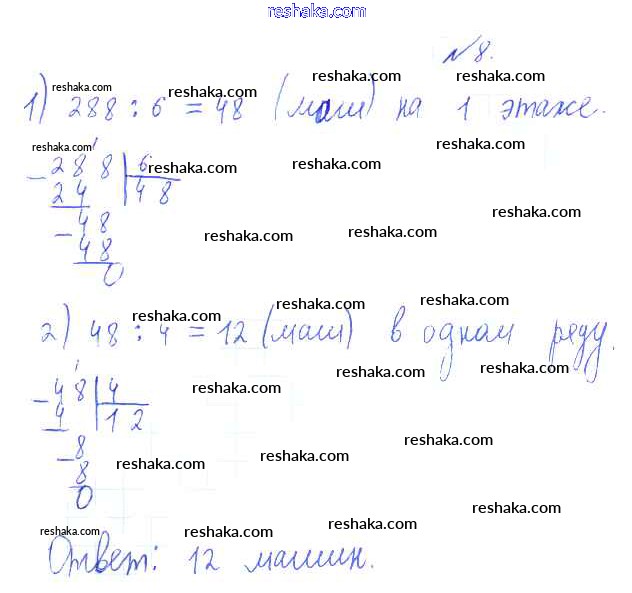 reshaka.com
№8.
reshaka.com reshaka.com
reshaka.com reshaka.com
1) 288 : 6 = 48 (маш) на 1 этаже.
reshaka.com reshaka.com
- 288 | 6
24 | 48
reshaka.com
- 48
reshaka.com reshaka.com
48
0
reshaka.com reshaka.com reshaka.com
2) 48 : 4 = 12 (маш) в одном ряду.
reshaka.com reshaka.com
reshaka.com reshaka.com
- 48 | 4
4 | 12
reshaka.com
- 8
reshaka.com reshaka.com
8
0
reshaka.com
reshaka.com reshaka.com reshaka.com
Ответ: 12 машин.
reshaka.com reshaka.com reshaka.com